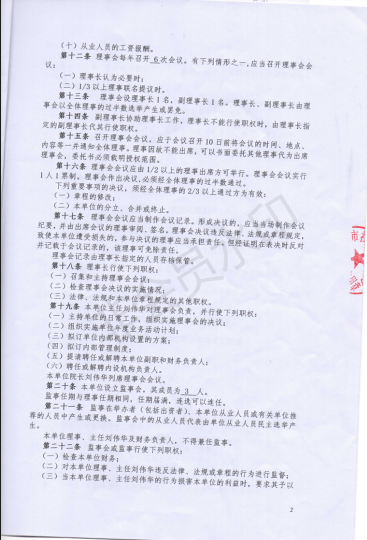 （十）从业人员的工资报酬。
第十二条 理事会每年召开 6 次会议。有下列情形之一，应当召开理事会会
议：
（一）理事长认为必要时；
（二）1/3以上理事联名提议时。
第十三条 理事会设理事长1名，副理事长1名。理事长、副理事长由理
事会以全体理事的过半数选举产生或罢免。
第十四条 副理事长协助理事长工作，理事长不能行使职权时，由理事长指
定的副理事长代其行使职权。
第十五条 召开理事会会议，应于会议召开10日前将会议的时间、地点、
内容等一并通知全体理事。理事因故不能出席，可以书面委托其他理事代为出席
理事会，委托书必须载明授权范围。
第十六条 理事会会议应由1/2以上的理事出席方可举行。理事会会议实行
1人1票制。理事会作出决议，必须经全体理事的过半数通过。
下列重要事项的决议，须经全体理事的2/3以上通过方为有效：
（一）章程的修改；
（二）本单位的分立、合并或终止。
第十七条 理事会会议应当制作会议记录。形成决议的，应当当场制作会议
纪要，并由出席会议的理事审阅、签名。理事会决议违反法律、法规或章程规定，
致使本单位遭受损失的，参与决议的理事应当承担责任。但经证明在表决时反对
并记载于会议记录的，该理事可免除责任。
理事会记录由理事长指定的人员存档保管。
第十八条 理事长行使下列职权：
（一）召集和主持理事会会议；
（二）检查理事会决议的实施情况；
（三）法律、法规和本单位章程规定的其他职权。
第十九条 本单位主任刘伟华对理事会负责，并行使下列职权：
（一）主持单位的日常工作，组织实施理事会的决议；
（二）组织实施单位年度业务活动计划；
（三）拟订单位内部机构设置的方案；
（四）拟订内部管理制度；
（五）提请聘任或解聘本单位副职和财务负责人；
（六）聘任或解聘内设机构负责人。
本单位院长刘伟华列席理事会会议。
第二十条 本单位设立监事会，其成员为 3 人。
监事任期与理事任期相同，任期届满，连选可以连任。
第二十一条 监事在举办者（包括出资者）、本单位从业人员或有关单位推
荐的人员中产生或更换。监事会中的从业人员代表由单位从业人员民主选举产
生。
本单位理事、主任刘伟华及财务负责人，不得兼任监事。
第二十二条 监事会或监事行使下列职权：
（一）检查本单位财务；
（二）对本单位理事、主任刘伟华违反法律、法规或章程的行为进行监督；
（三）当本单位理事、主任刘伟华的行为损害本单位的利益时，要求其予以
2